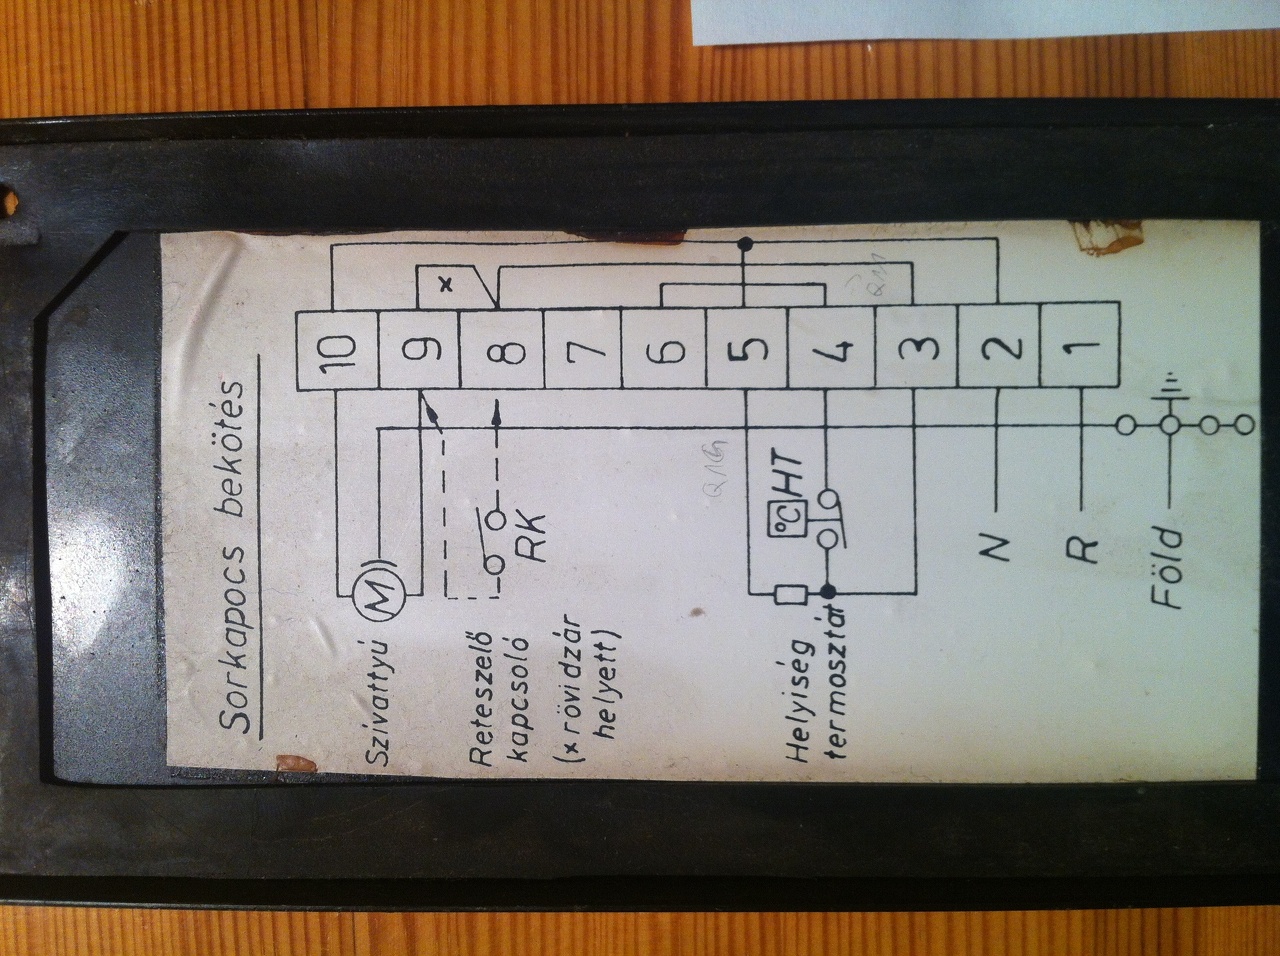 Sorkapocs bekötés
10
9
8
7
6
5
4
3
2
1
x
Szivattyú
M
Reteszelő
kapcsoló
RK
(x rövidzár
helyett)
Helyiség
termosztát
°C
HT
N
R
Föld